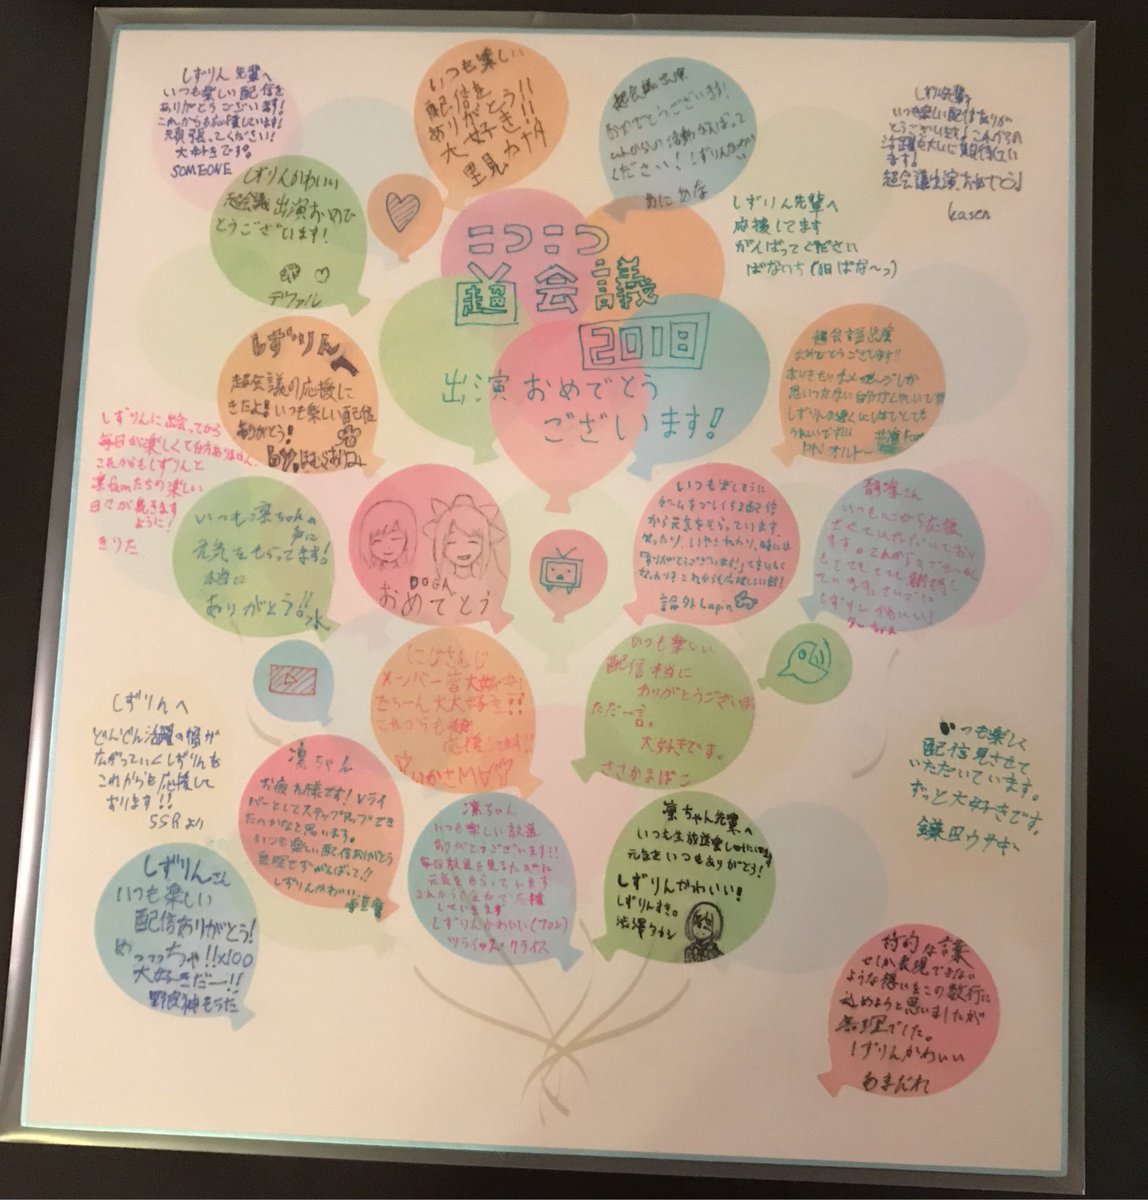 しずりん先輩へ
いつも楽しい配信を
ありがとうございます!
これからも応援しています!
頑張ってください!
大好きです。
SOMEONE
いつも楽しい
配信を
ありがとう!!
大好き!!
里見カナタ
超会議出演
おめでとうございます!
これからの活動もがんばって
ください! しずりんかわいい
いつも楽しい配信ありが
とうございます♪これからの
超会議出演おめでとう♪
kasen
しずりんかわいい
超会議出演おめで
とうございます!
デファル
しずりん先輩へ
応援してます
がんばってください
ばないち(旧ばな〜っ)
ニコニコ
超会議
2018
出演おめでとう
ございます!
しずりんへ
超会議の応援に
きたよ!いつも楽しい配信
ありがとう!
超会議出演
おめでとうございます!!
しずりんに出会ってから
毎日が楽しくて仕方ありません。
これからもしずりんと
凛Famたちの楽しい
日々が続きます
ように!
きりた
いつも凛ちゃんの
声に
元気をもらってます!
本当に
ありがとう!!
DOGA
おめでとう
いつも楽しそうに
ゲームをプレイする配信
から元気をもらっています。
論外Lapin
静凛さん
いつも心から応援
させていただいており
ます。
しずりんかわいい!
にじさんじ
メンバー皆大好き!
でも一人大大好き!!
これからも
応援してます!!
いかさMA
いつも楽しい
配信本当に
ありがとうございます
ただ一言。
大好きです。
ささかまぼこ
しずりんへ
どんどん活躍の幅が
広がっていくしずりんを
これからも応援して
おります!!
SSRより
凛ちゃん
お疲れ様です!Vライ
バーとしてステップアップでき
たのかなと思います。
いつも楽しい配信ありがとう
無理せずがんばって!!
しずりんかわいい
凛ちゃん
いつも楽しい放送
ありがとうございます!!
毎日放送を見るたびに
元気をもらっています
これからも全力で応援
していきます
しずりんかわいい(ファン)
ツライッズ クライス
凛ちゃん先輩へ
元気をいつもありがとう!
しずりんかわいい!
しずりんすき。
渋澤タカシ
いつも楽しく
配信見させて
いただいています。
ずっと大好きです。
鎌田ウサギ
しずりんさん
いつも楽しい
配信ありがとう!
めっっっちゃ!!x100
大好きだー!!
野良神もうた
詩的な言葉
でしか表現できない
ような想いをこの数行に
込めようと思いましたが
無理でした。
しずりんかわいい
あまだれ